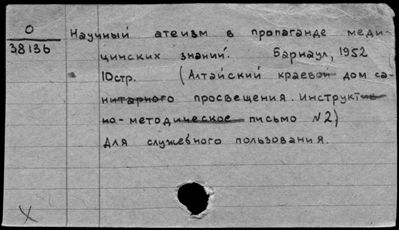 0
38136
Научный атеизм в пропаганде меди-
цинских знаний. Барнаул, 1952
10стр. (Алтайский краевой дом са-
нитарного просвещения. Инструктив-
но-методическое письмо №2)
Для служебного пользования.
X